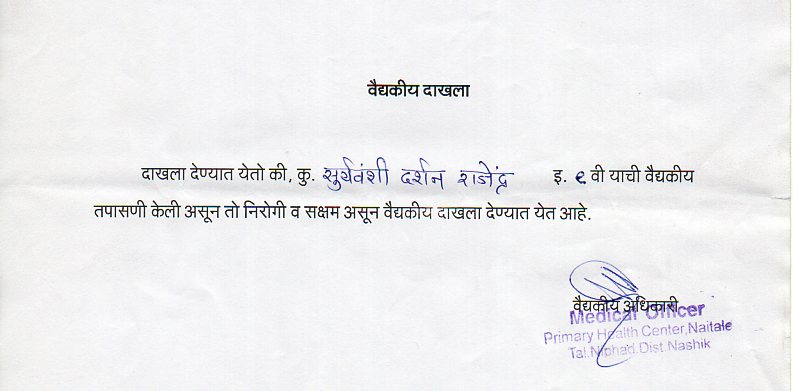 वैद्यकीय दाखला
दाखला देण्यात येतो की, कु. सुर्यवंशी दर्शन राजेंद्र इ. ९ वी याची वैद्यकीय
तपासणी केली असून तो निरोगी व सक्षम असून वैद्यकीय दाखला देण्यात येत आहे.
वैद्यकीय अधिकारी
Medical Officer
Primary Health Center,Naitale
Tal.Niphad.Dist.Nashik